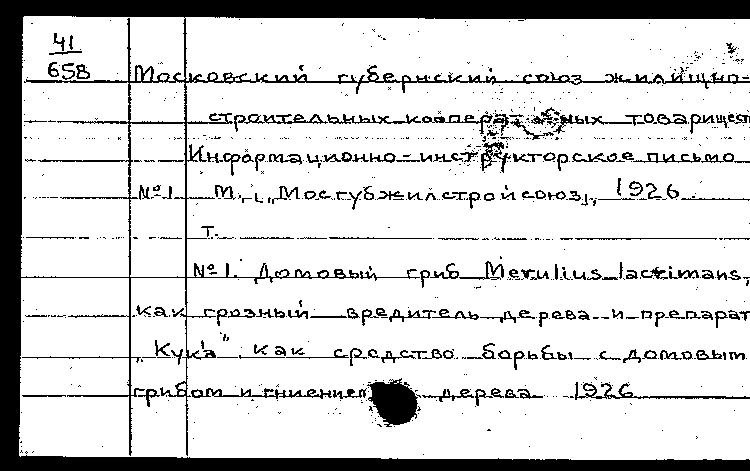 41
658
Московский губернский союз жилищно-
строительных кооперат ных товарищест
Информационно-инструкторское письмо
№1 М., [„Мосгубжилстройсоюз], 1926
т.
№1. Домовый гриб Merulius lacrimans,
как грозный вредитель дерева и препарат
„Кук'а" как средство борьбы с домовым
грибом и гниением дерева 1926